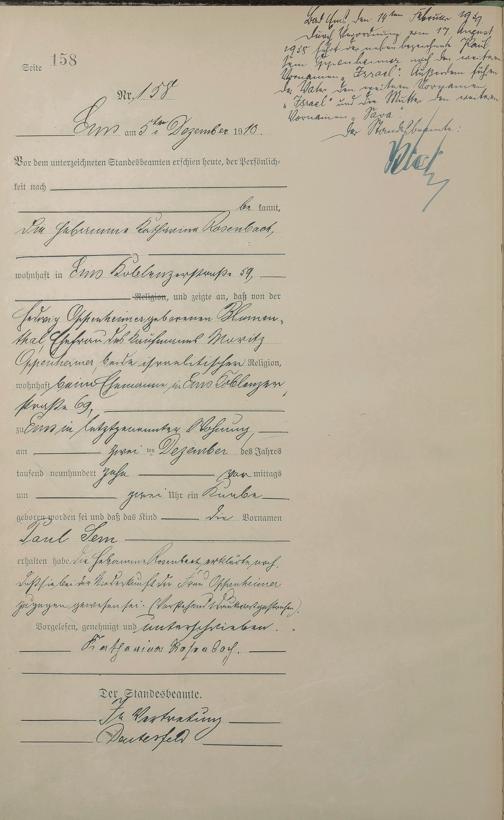 Seite 158
Bad Ems, den 14ten Februar
Durch Verordnung vom 17. August
führt der nebenbezeichnete Paul
Sem Oppenheimer noch den weitern
Vornamen „Israel“. Außerdem führen
der Vater den weitern Vornamen
„Israel“ und die Mutter den weitern
Vornamen „Sara“.
Der Standesbeamte:
Nr. 158
Ems am 5ten Dezember 1910.
Vor dem unterzeichneten Standesbeamten erschien heute, der Persönlich-
keit nach
be kannt,
die Hebamme Katharina Rosenbach,
wohnhaft in Ems Koblenzerstraße 59,
Religion, und zeigte an, daß von der
Hedwig Oppenheimer geborenen Blumen-
thal Ehefrau des Kaufmanns Moritz
Oppenheimer, beide israelitischer Religion,
wohnhaft beim Ehemanne in Ems Coblenzer
straße 69,
zu Ems in letztgenannter Wohnung,
am zwei ten Dezember des Jahres
tausend neunhundert zehn vor mittags
um zwei Uhr ein Knabe
geboren worden sei und daß das Kind die Vornamen
Paul Sem
erhalten habe. Die Hebamme Rosenbach erklärte noch,
daß sie bei der Niederkunft der Frau Oppenheimer
zugegen gewesen sei. (Vorstehend Druckwort gestrichen).
Vorgelesen, genehmigt und unterschrieben.
Katharina Rosenbach.
Der Standesbeamte.
In Vertretung